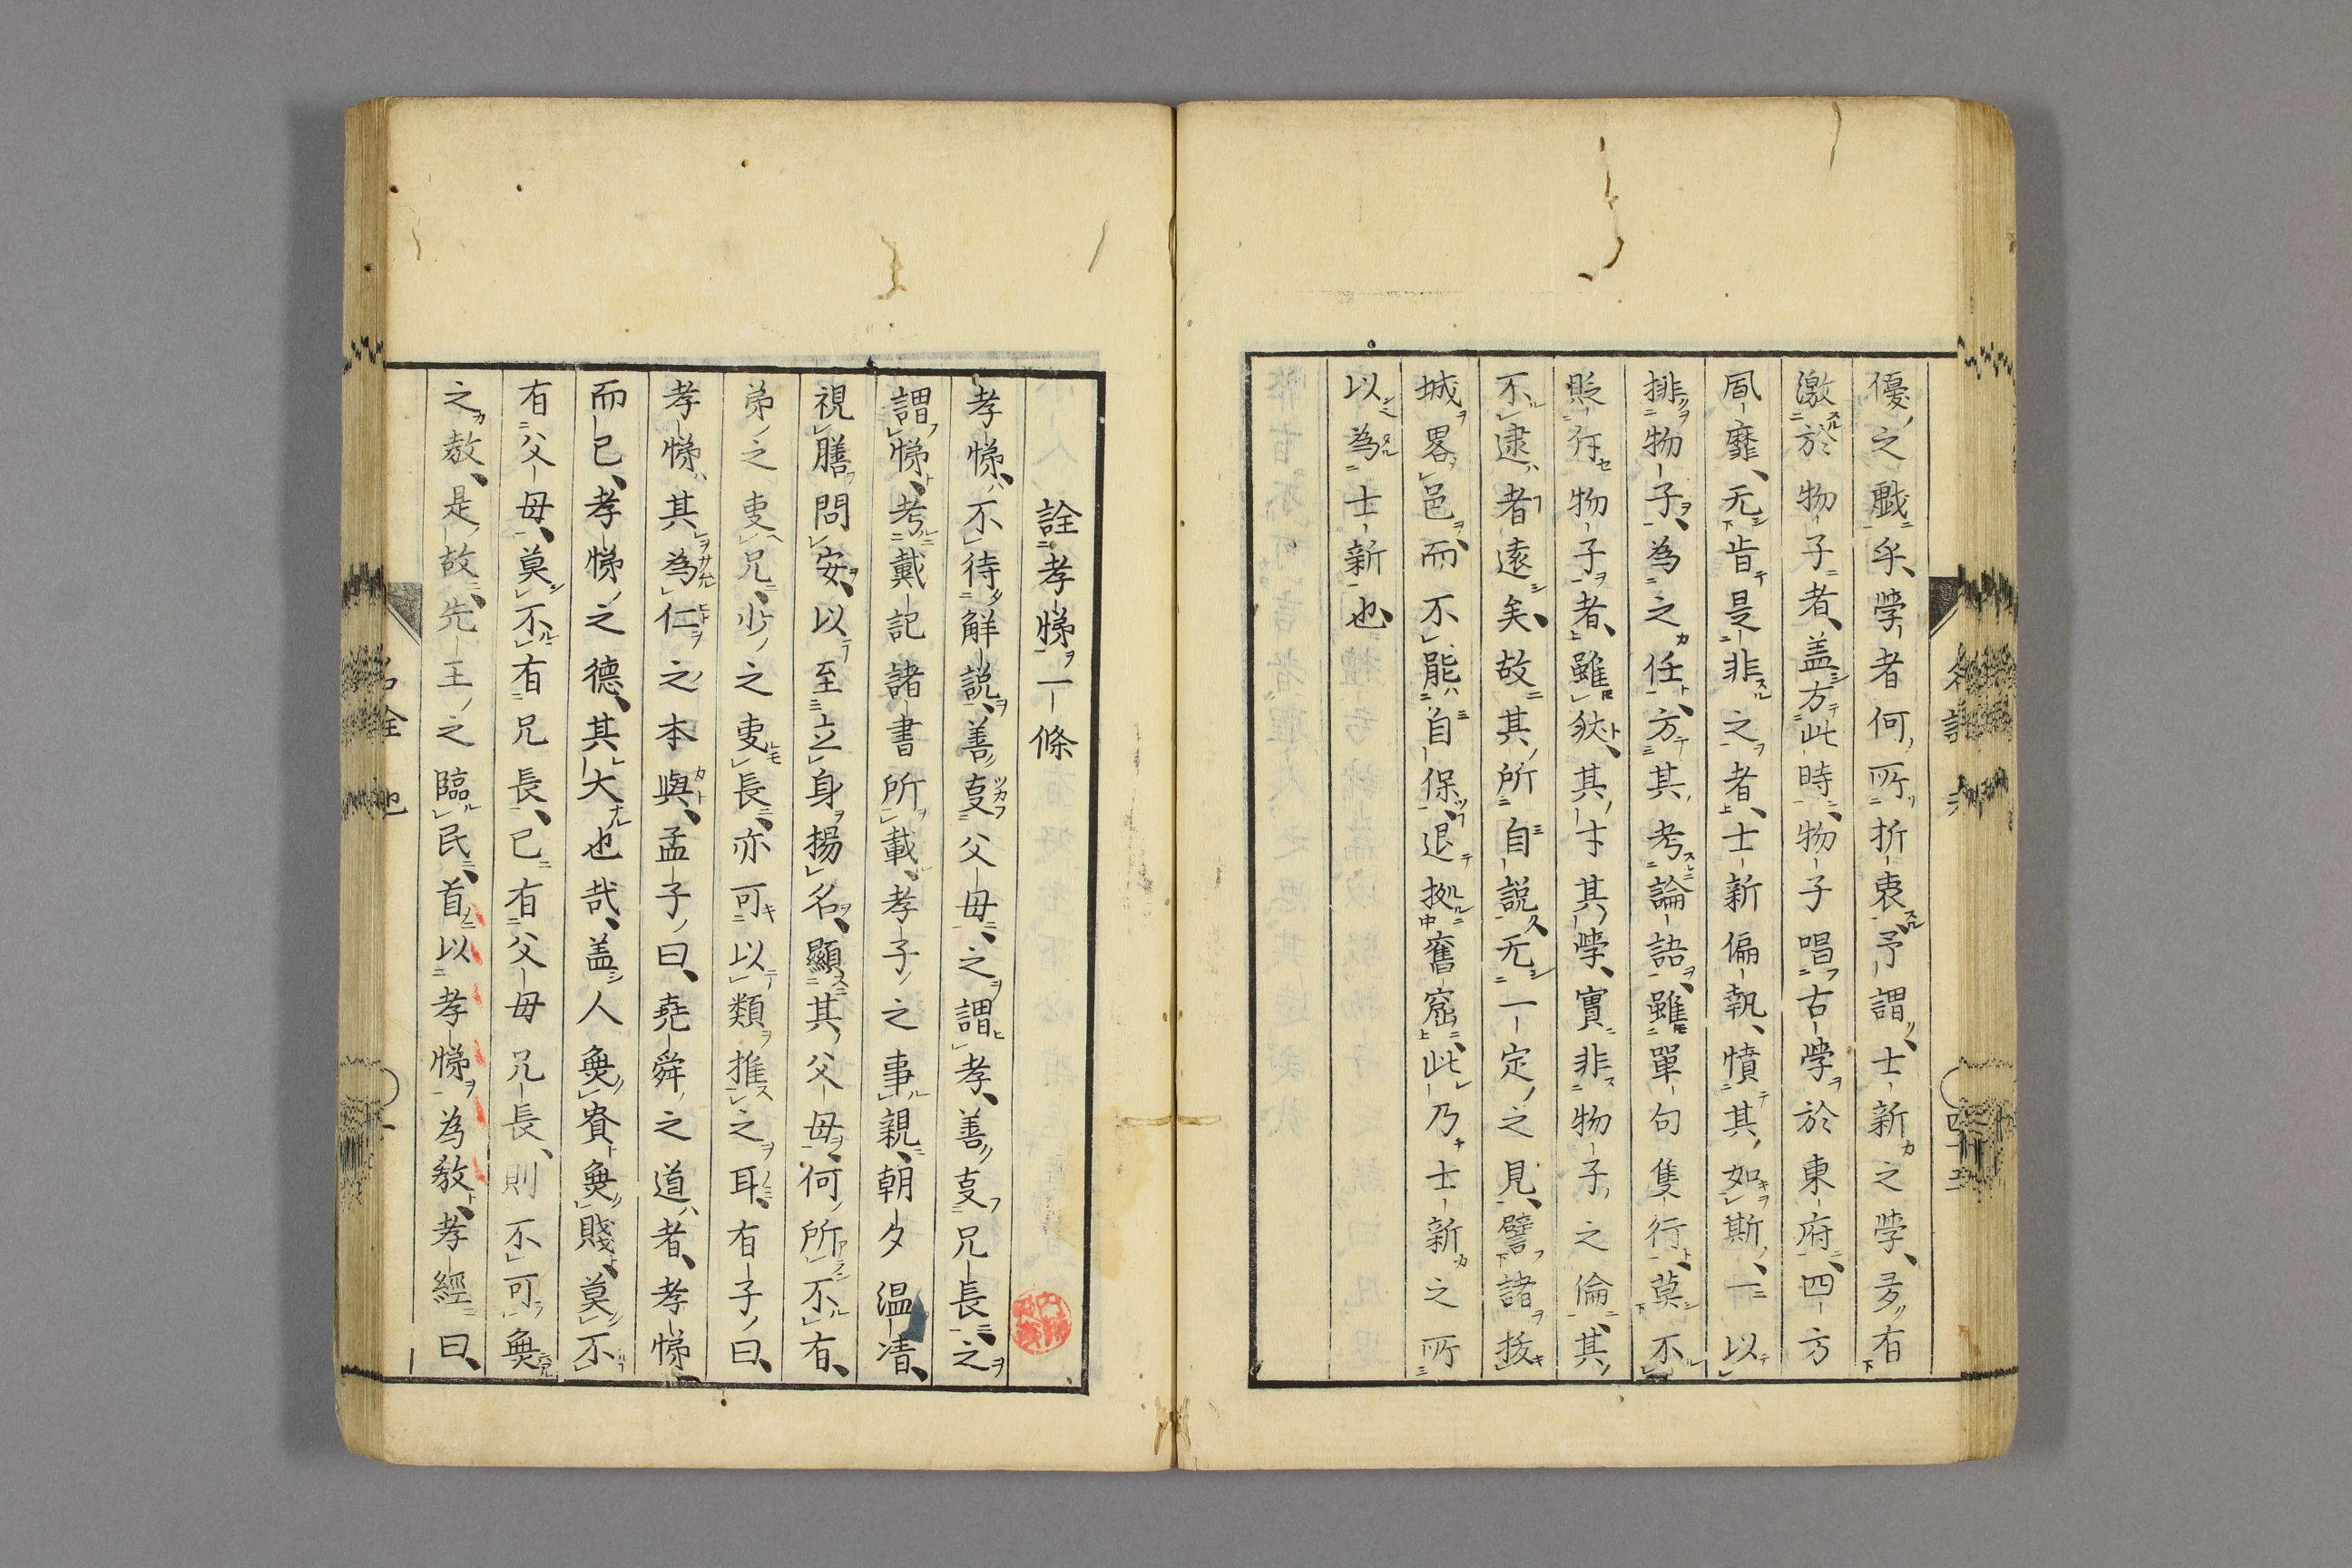 優之戱乎、學者何所折衷、予謂士新之學、多有
激於物子者、盖方此時、物子唱古學於東府、四方
風靡、无肯是非之者、士新偏執、憤其如斯、一以
排物子、為之任、方其考論語、雖單句隻行、莫不
貶斥物子者、雖狄、其才其學、實非物子之倫、其
不逮者遠矣、故其所自說无一定之見、譬諸拔
城畧邑、而不能自保、退據舊窟、此乃士新之所
以為士新也、
詮孝悌一條
孝悌、不待解說、善叓父母、之謂孝、善叓兄長、之
謂悌、考戴記諸書所載、孝子之事親、朝夕溫凊、
視膳問安、以至立身揚名、顯其父母、何所不有、
弟之叓兄、少之叓長、亦可以類推之耳、有子曰、
孝悌其為仁之本與、孟子曰、堯舜之道者、孝悌
而已、孝悌之德、其大也哉、盖人無貴無賤、莫不
有父母、莫不有兄長、已有父母兄長、則不可無
之敎、是故先王之臨民、首以孝悌為敎、孝經曰、